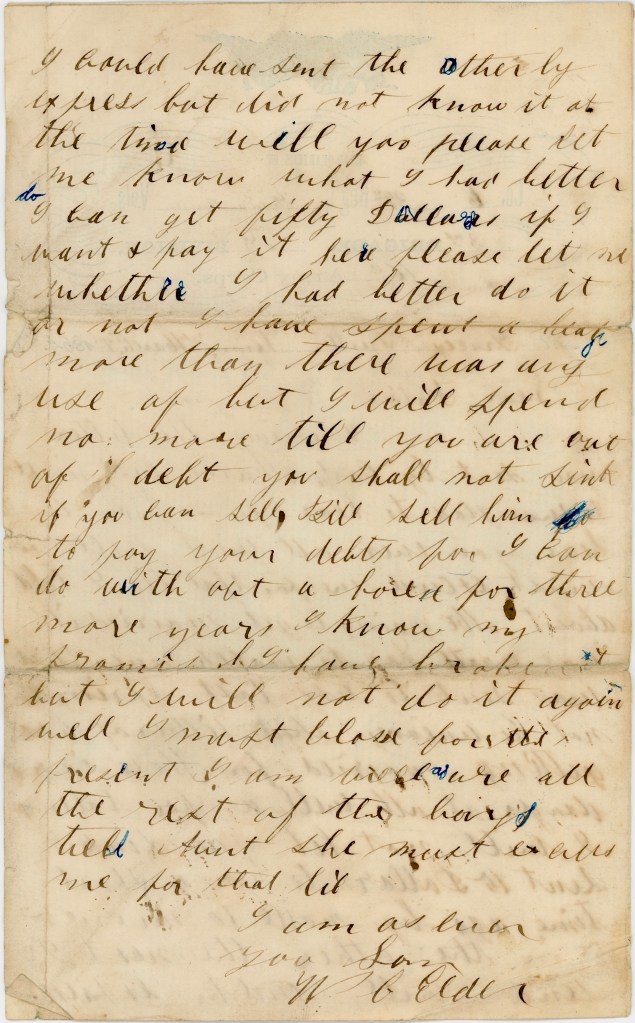 I Could have sent the other by
express but did not know it at
the time will you please let
me know what I had better
do
I can get fifty Dollars if I
want & pay it here please let me
whether I had better do it
or not I have spent a heap
more than there was any
use of but I will spend
no more till you are out
of debt you shall not sink
if you can sell Bill sell him
to pay your debts for I can
do with out a horse for three
more years I know my
promis I have broken it
but I will not do it again
well I must close for the
present I am well as are all
the rest of the boys
tell Aunt she must excus
me for that
I am as ever
you Son
W C Elder